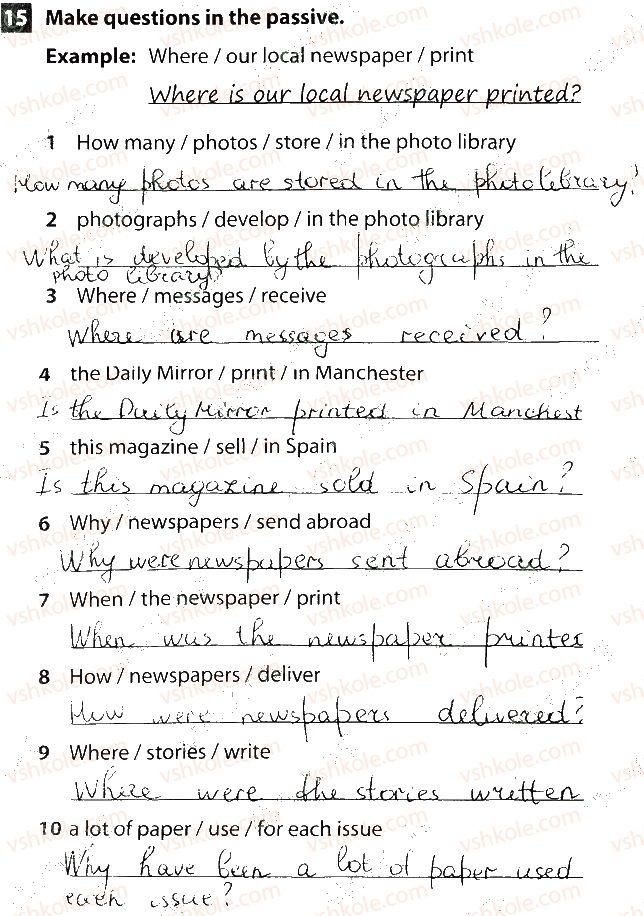 15 Make questions in the passive.
Example: Where / our local newspaper / print
Where is our local newspaper printed?
1 How many / photos / store / in the photo library
How many photos are stored in the photo library?
2 photographs / develop / in the photo library
What is developed by the photographs in the
photo library?
3 Where / messages / receive
Where are messages received?
4 the Daily Mirror / print / in Manchester
Is the Daily Mirror printed in Manchest
5 this magazine / sell / in Spain
Is this magazine sold in Spain?
6 Why / newspapers / send abroad
Why were newspapers sent abroad?
7 When / the newspaper / print
When was the newspaper printed
8 How / newspapers / deliver
How were newspapers delivered?
9 Where / stories / write
Where were the stories written
10 a lot of paper / use / for each issue
Why have been a lot of paper used
each issue?